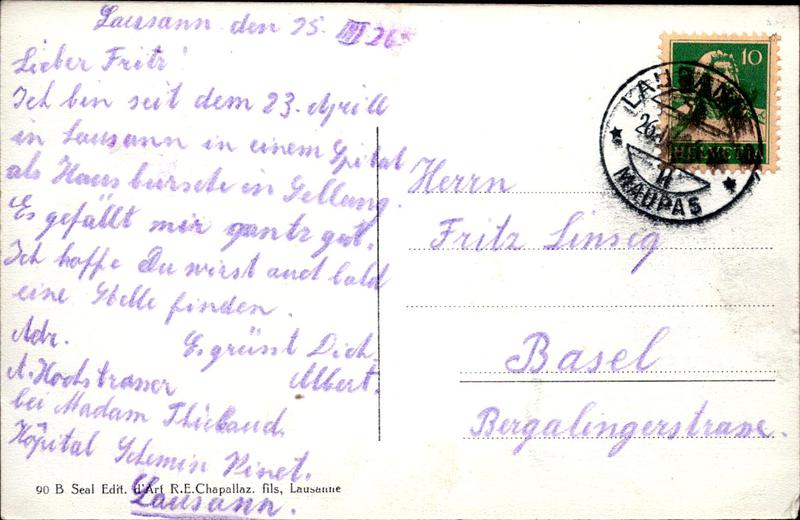 Laussann den 25. IIII 26.
Lieber Fritz!
Ich bin seit dem 23. Aprill
in Lausann in einem Spital
als Hausbursche in Stellung.
Es gefällt mir gantz gut.
Ich hoffe Du wirst auch bald
eine Stelle finden.
Adr. Es grüsst Dich
A. Hochstrasser Albert.
bei Madam Thiebaud
Hôpital Schemin Vinet.
Lausann.
90 B Seal Edit. d'Art R.E.Chapallaz. fils, Lausanne
10
HELVETIA
LAUSANNE
26.
MAUPAS
Herrn
Fritz Linseg
Basel
Bergalingerstrasse.